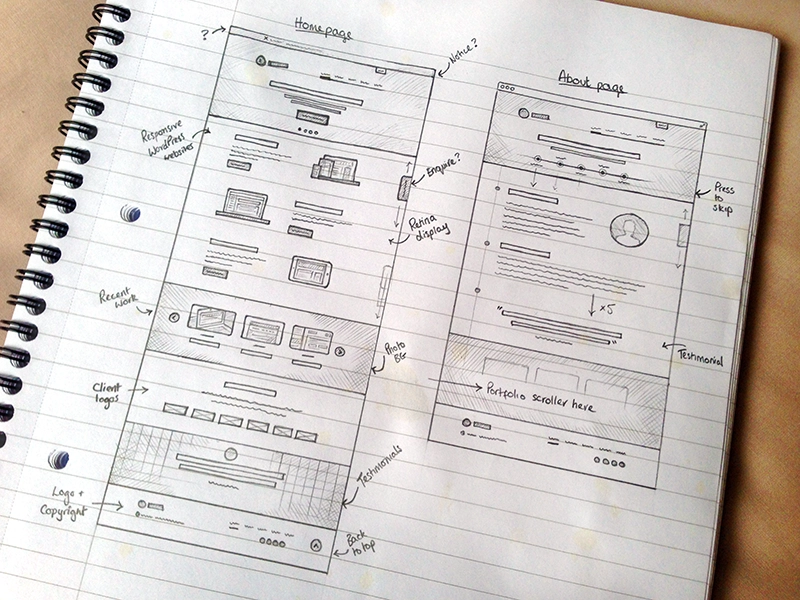 Homepage
?
Notice?
Responsive
WordPress
websites
Enquire?
Retina
display
Recent
Work
Photo
BG
Client
logos
Testimonials
Logo +
Copyright
Back
to top
About page
Press
to
skip
x5
"
"
Testimonial
Portfolio scroller here